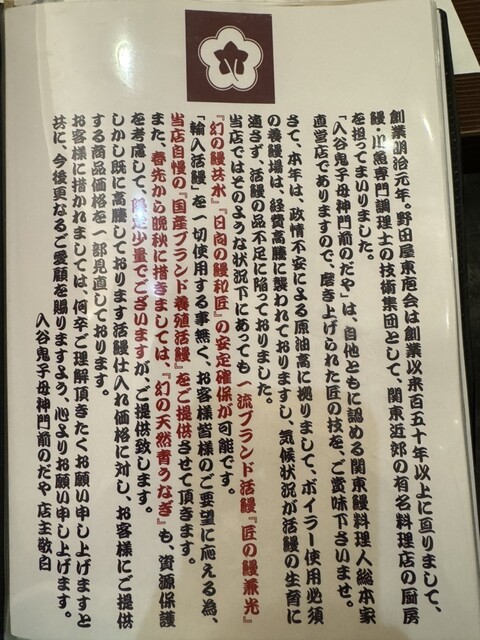 創業明治元年。野田屋東庖会は創業以来百五十年以上に亘りまして、
鰻・川魚専門調理士の技術集団として、関東近郊の有名料理店の厨房
を担ってまいりました。
「入谷鬼子母神門前のだや」は、自他ともに認める関東鰻料理人総本家
直営店でありますので、磨き上げられた匠の技を、ご賞味下さいませ。
さて、本年は、政情不安による原油高に拠りまして、ボイラー使用必須
の養鰻場は、経費高騰に襲われておりますし、気候状況が活鰻の生育に
適さず、活鰻の品不足に陥っておりました。
当店ではそのような状況下にあっても一流ブランド活鰻『匠の鰻兼光』
『幻の鰻共水』『日向の鰻和匠』の安定確保が可能です。
「輸入活鰻」を一切使用する事無く、お客様皆様のご要望に応える為、
当店自慢の『国産ブランド養殖活鰻』をご提供させて頂きます。
また、春先から晩秋に掛きましては、『幻の天然青うなぎ』も、資源保護
を考慮して、限定少量でございますが、ご提供致します。
しかし既に高騰しております活鰻仕入れ価格に対し、お客様にご提供
する商品価格を一部見直しております。
お客様に掛かれましては、何卒ご理解頂きたくお願い申し上げますと
共に、今後更なるご愛顧を賜りますよう、心よりお願い申し上げます。
入谷鬼子母神門前のだや 店主敬白